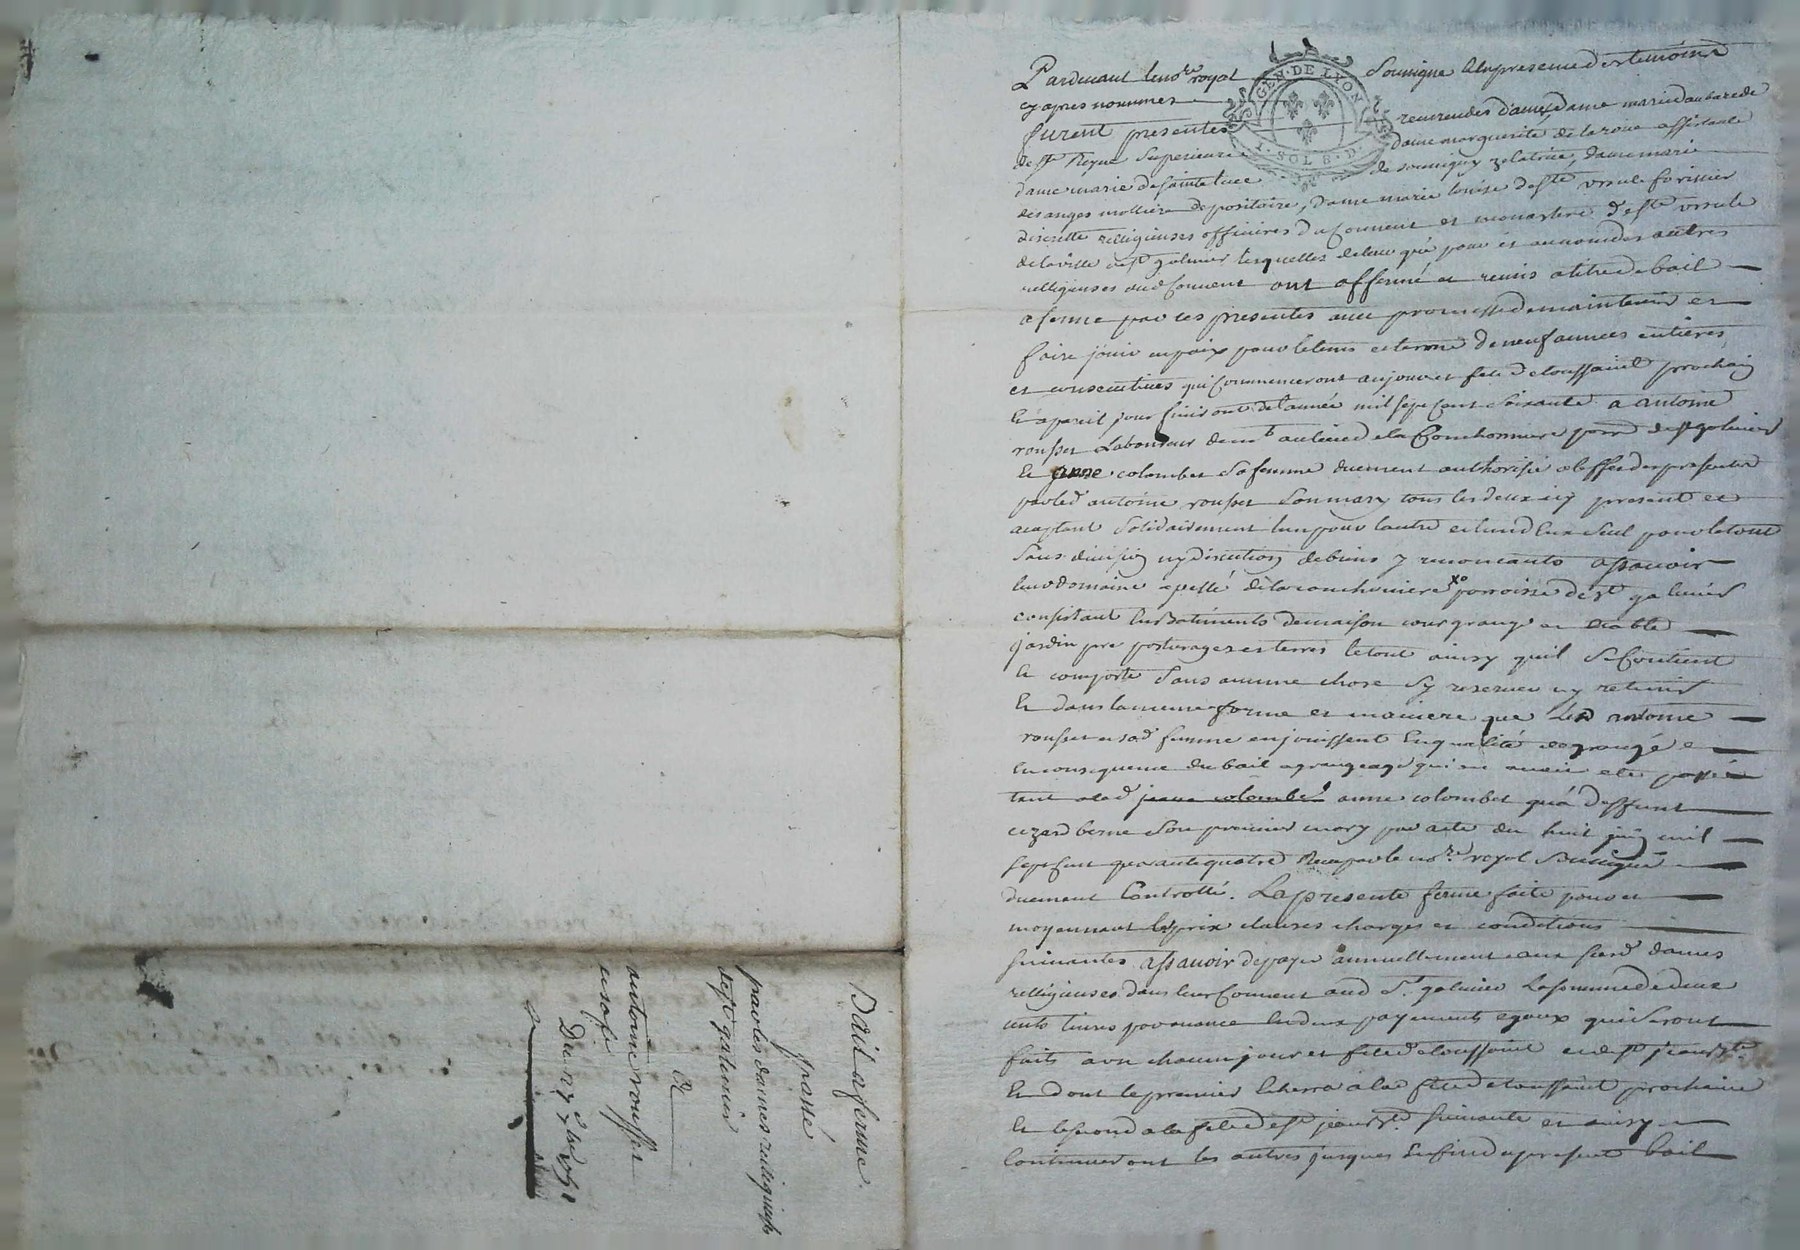 Pardevant le no.re royal soussigne & la presence des temoins
cy apres nommés
furent presentes reverendes dames, dame marie daubarede
de s.te Reyne superieure dame marguerite de la roue assistante
dame marie de sainte luce de zelatrice, dame marie
des anges molliere depositaire, dame marie louise de s.te ursule forissier
discrette relligieuses officieres du couvent et monastere de s.te ursule
de la ville de s.t galmier lesquelles de leur gré pour et au nom des autres
relligieuses dud couvent ont affermé et remis a titre de bail
a ferme par ces presentes avec promesse de maintenir et
faire jouir en paix pour le tems et terme de neuf années entieres
et consecutives qui commenceront au jour et fete de toussaint prochain
& a pareil jour finiront de l'année mil sept cent soixante a antoine
rousset laboureur dem.t au lieu de la Conchonniere parr de s.t galmier
& anne colombet sa femme duement authorisée a l'effet des presentes
par led antoine rousset son mary tous les deux icy present et
aceptant solidairement l'un pour l'autre et l'un d'eux seul pour le tout
sans division ny discution de biens y renoncants assavoir
leur domaine apellé de la conchoniere parroisse de s.t galmier
consistant en batiments de maison cour grange et etable
jardin pre paturages et terres le tout ainsy quil se contient
& comporte sans aucune chose s'y reserver ny retenir
& dans la meme forme et maniere que led antoine
rousset et sad femme en jouissent en qualité de grangé
en consequence du bail a grangeage qui en avoit eté passé
tant a lad jeane colombet anne colombet qu'a deffunt
cezard berne son premier mary par acte du huit juin mil
sept cent quarante quatre Recu par le no.re royal soussigné
duement Controllé. La presente ferme faite pour et
moyennant les prix clauses charges et conditions
suivantes assavoir de payer annuellement aux susd dames
relligieuses dans leur Couvent aud s.t galmier la somme de deux
cents livres par année en deux payements egaux qui seront
faits a un chacun jour et fete de toussaint et de s.t jean b.te
& dont le premier echerra a la fete de toussaint prochaine
& le second a la fete de s.t jean b.te suivante et ainsy
Continueront les autres jusques en fin du present bail
Bail a ferme
passé
par les dames relligieuses
de s.t galmier
a
antoine rousset
et sa fe
GEN · DE LYON
1 · SOL 8 · D ·